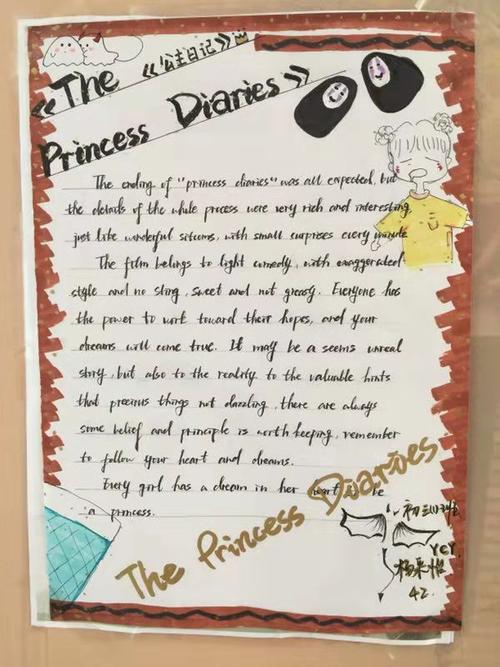 《公主日记》
《The
Princess Diaries》
The ending of "princess diaries" was all expected, but
the details of the whole process were very rich and interesting,
just like wonderful sitcoms, with small surprises every minute.
The film belongs to light comedy, with exaggerated
style and no sting, sweet and not greasy. Everyone has
the power to work toward their hopes, and your
dreams will come true. It may be a seems unreal
story, but also to the reality to the valuable hints
that precious things not dazzling, there are always
some belief and principle is worth keeping, remember
to follow your heart and dreams.
Every girl has a dream in her heart to be
a princess.
The Princess Diaries
YCY.
42.